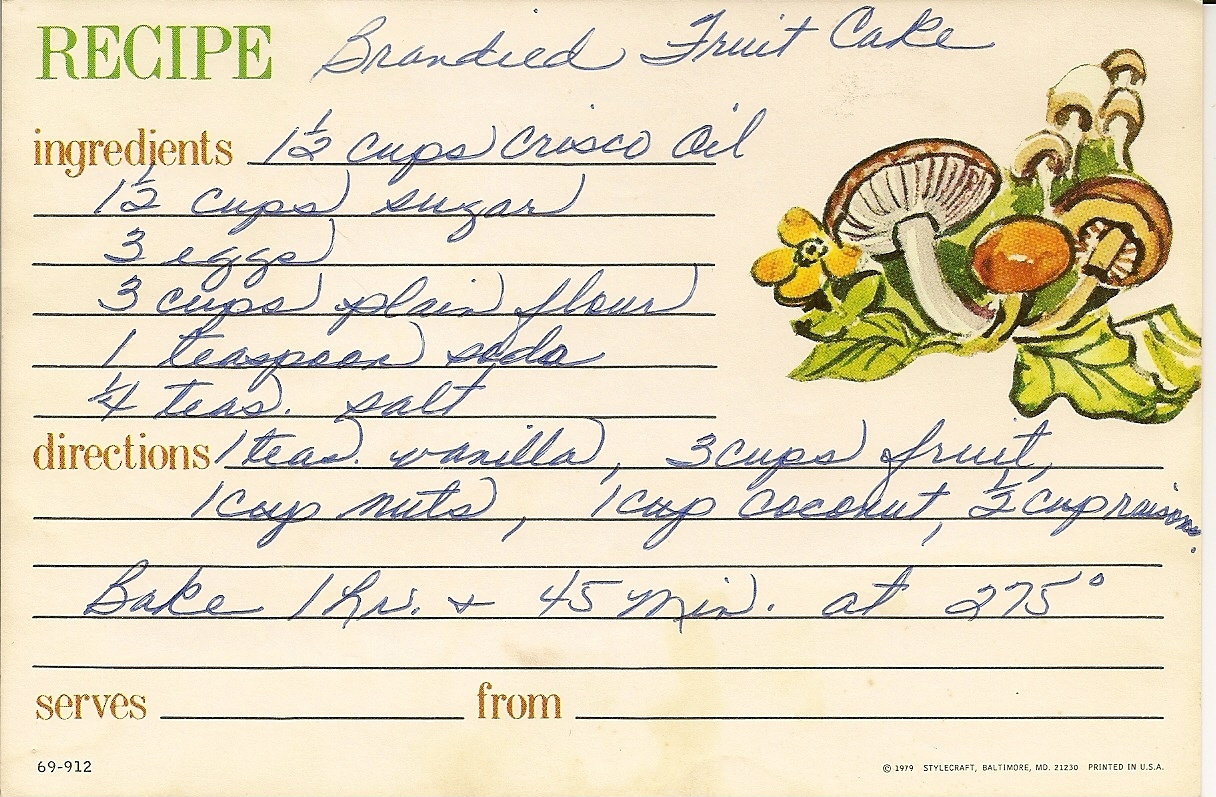 RECIPE Brandied Fruit Cake
ingredients 1 1/2 cups Crisco Oil
1 1/2 cups sugar
3 eggs
3 cups plain flour
1 teaspoon soda
1/4 teas. salt
directions 1 teas. vanilla, 3 cups fruit,
1 cup nuts, 1 cup coconut, 1/2 cup raisins.
Bake 1 hr. + 45 min. at 275°
serves from
69-912 © 1979 STYLECRAFT, BALTIMORE, MD. 21230 PRINTED IN U.S.A.